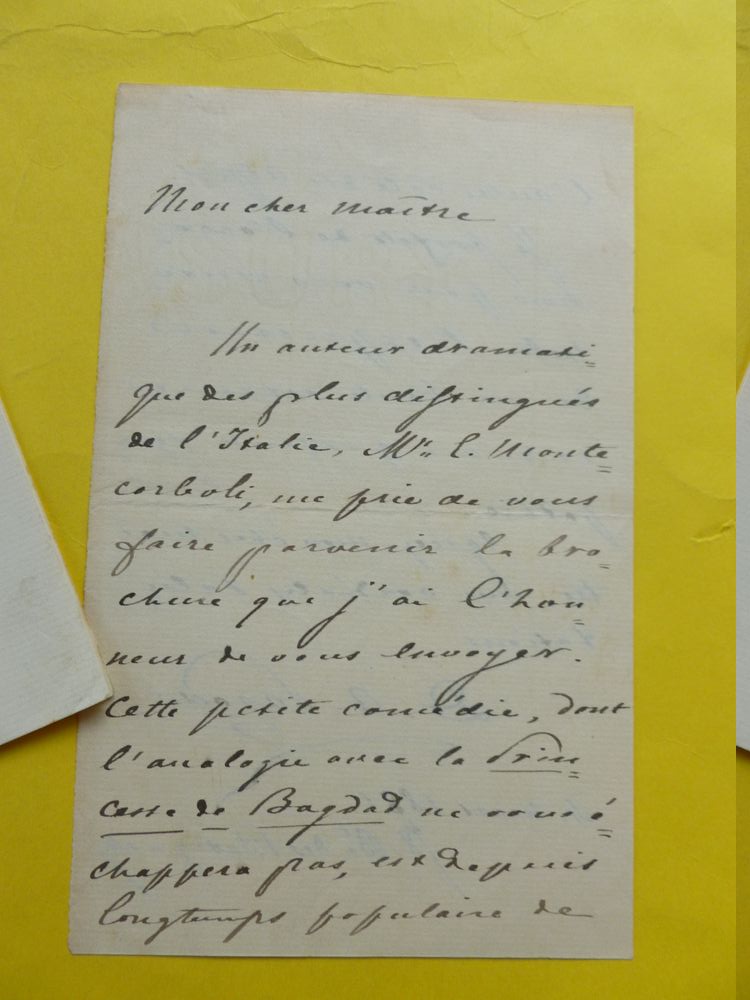 Mon cher maître
Un auteur dramati=
que des plus distingués
de l'Italie, Mr. E. Monte=
corboli, me prie de vous
faire parvenir la bro=
chure que j'ai l'hon=
neur de vous envoyer.
Cette petite comédie, dont
l'analogie avec la Prin=
cesse de Bagdad ne vous é=
chappera pas, est depuis
longtemps populaire de